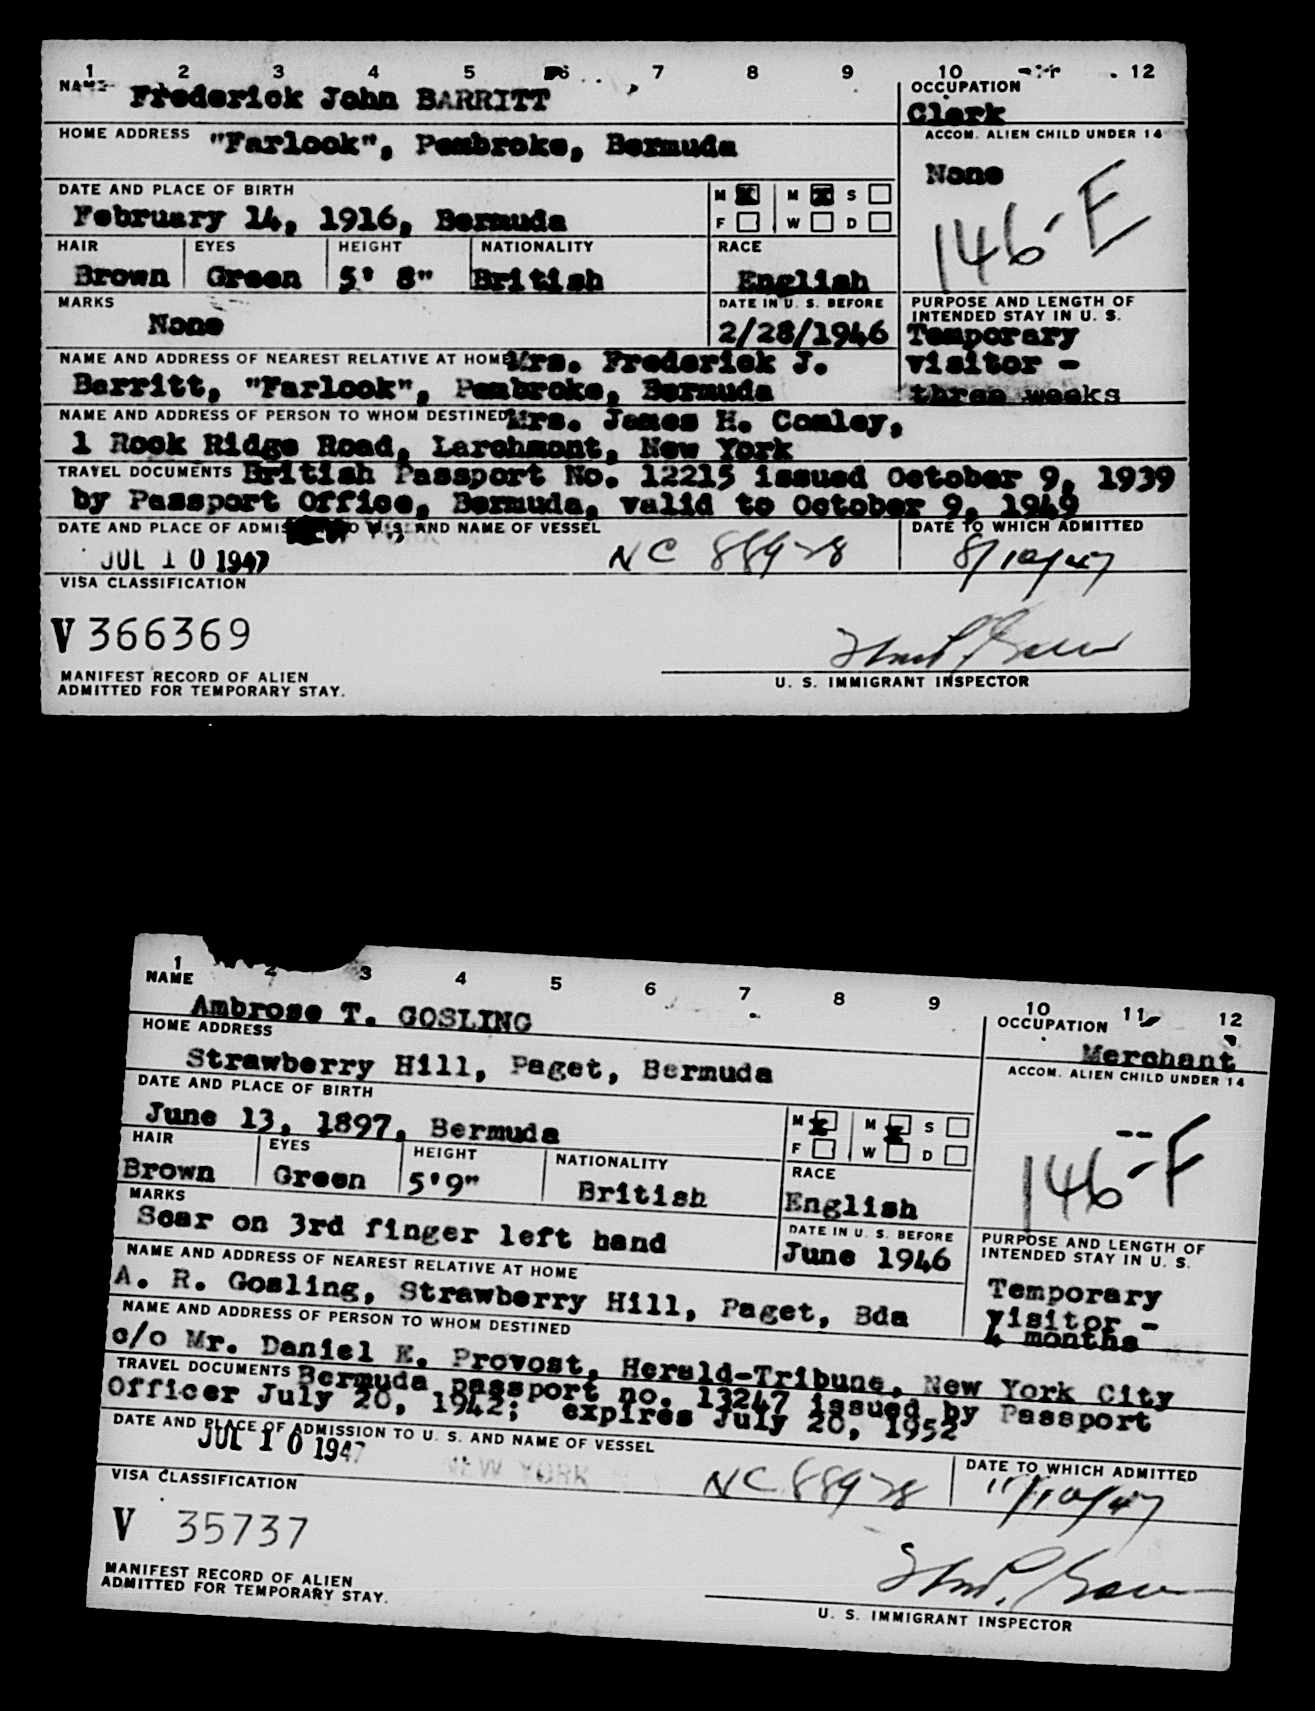 1 2 3 4 5 6 7 8 9 10 12
NAME Frederick John BARRITT
OCCUPATION
Clerk
HOME ADDRESS "Farlook", Pembroke, Bermuda
ACCOM. ALIEN CHILD UNDER 14
None
146-E
DATE AND PLACE OF BIRTH
February 14, 1916, Bermuda
M X M X S
F W D
HAIR EYES HEIGHT NATIONALITY RACE
Brown Green 5' 8" British English
MARKS
None
DATE IN U. S. BEFORE
2/28/1946
PURPOSE AND LENGTH OF
INTENDED STAY IN U. S.
Temporary
visitor -
three weeks
NAME AND ADDRESS OF NEAREST RELATIVE AT HOME Mrs. Frederick J.
Barritt, "Farlook", Pembroke, Bermuda
NAME AND ADDRESS OF PERSON TO WHOM DESTINED Mrs. James H. Comley,
1 Rock Ridge Road, Larchmont, New York
TRAVEL DOCUMENTS British Passport No. 12215 issued October 9, 1939
by Passport Office, Bermuda, valid to October 9, 1949
DATE AND PLACE OF ADMISSION TO U. S. AND NAME OF VESSEL
DATE TO WHICH ADMITTED
JUL 10 1947 NC 88928 8/10/47
VISA CLASSIFICATION
V 366369
MANIFEST RECORD OF ALIEN
ADMITTED FOR TEMPORARY STAY.
U. S. IMMIGRANT INSPECTOR
1 2 3 4 5 6 7 8 9 10 11 12
NAME
Ambrose T. GOSLING
OCCUPATION
Merchant
HOME ADDRESS
Strawberry Hill, Paget, Bermuda
ACCOM. ALIEN CHILD UNDER 14
--
146-F
DATE AND PLACE OF BIRTH
June 13, 1897, Bermuda
M X M X S
F W D
HAIR EYES HEIGHT NATIONALITY RACE
Brown Green 5'9" British English
MARKS
Scar on 3rd finger left hand
DATE IN U. S. BEFORE
June 1946
PURPOSE AND LENGTH OF
INTENDED STAY IN U. S.
Temporary
visitor -
4 months
NAME AND ADDRESS OF NEAREST RELATIVE AT HOME
A. R. Gosling, Strawberry Hill, Paget, Bda
NAME AND ADDRESS OF PERSON TO WHOM DESTINED
c/o Mr. Daniel E. Provost, Herald-Tribune, New York City
TRAVEL DOCUMENTS Bermuda passport no. 13247 issued by Passport
Officer July 20, 1942; expires July 20, 1952
DATE AND PLACE OF ADMISSION TO U. S. AND NAME OF VESSEL
DATE TO WHICH ADMITTED
JUL 10 1947 NEW YORK NC 88928 11/10/47
VISA CLASSIFICATION
V 35737
MANIFEST RECORD OF ALIEN
ADMITTED FOR TEMPORARY STAY.
U. S. IMMIGRANT INSPECTOR